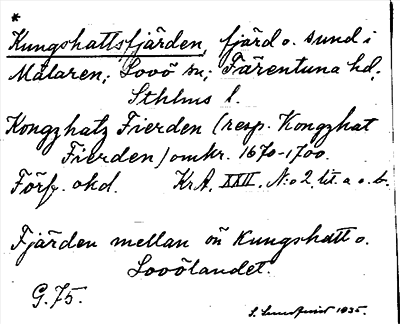 *
Kungshattsfjärden, fjärd o. sund i
Mälaren; Lovö sn; Färentuna hd;
Sthlms l.
Kongzhatz Fierden (resp. Kongzhat
Fierden) omkr. 1670-1700.
Förf. okd. KrA. XXII. N:o 2 lit. a o. b.
Fjärden mellan ön Kungshatt o.
Lovölandet.
G. 75.
S. Lundqvist 1935.